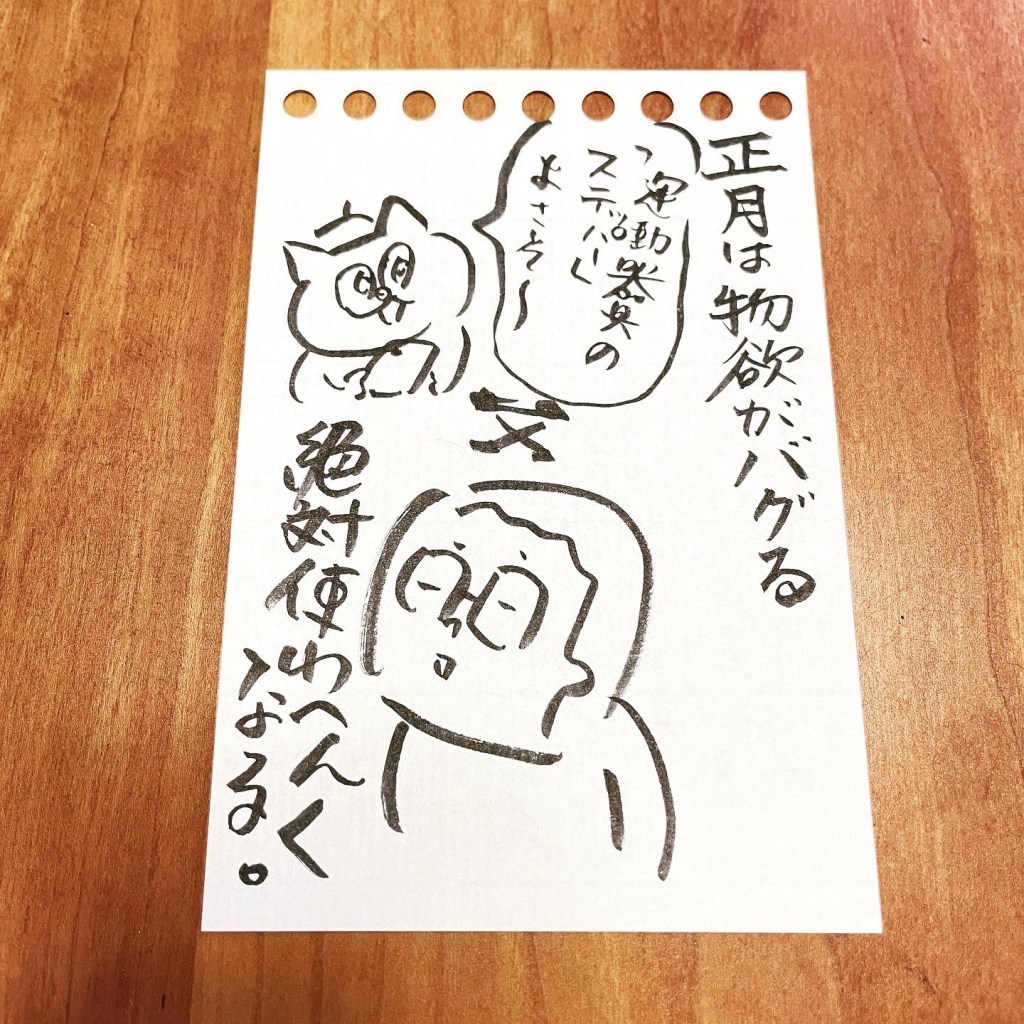 正月は物欲がバグる
運動器具の
ステッパー
よさそ〜
絶対使わへんく
なる。